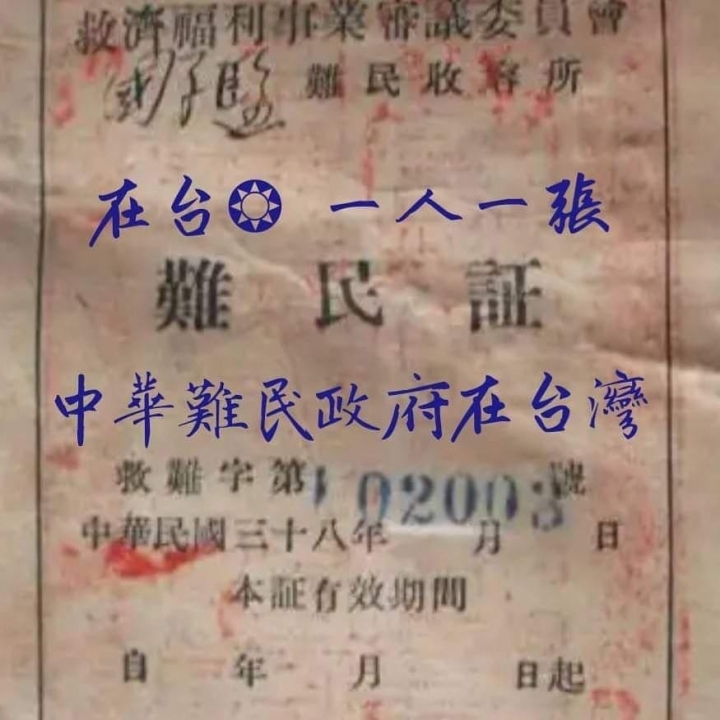 救濟福利事業審議委員會
國子監 難民收容所
在台 一人一張
難民証
中華難民政府在台灣
救難字第102003號
中華民國三十八年 月 日
本証有效期間
自 年 月 日起